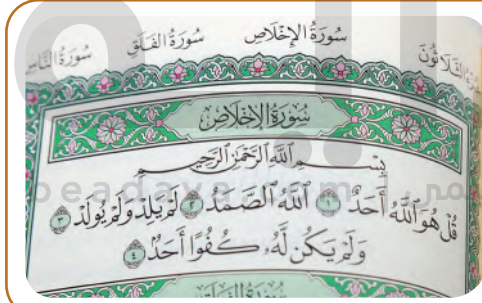 سُورَةُ الإِخْلَاصِ سُورَةُ الفَلَقِ سُورَةُ النَّاسِ
سُورَةُ الإِخْلَاصِ
بِسْمِ اللَّهِ الرَّحْمَٰنِ الرَّحِيمِ
قُلْ هُوَ اللَّهُ أَحَدٌ ١ اللَّهُ الصَّمَدُ ٢ لَمْ يَلِدْ وَلَمْ يُولَدْ ٣
وَلَمْ يَكُن لَّهُۥ كُفُوًا أَحَدٌ ٤
سُورَةُ الفَلَقِ